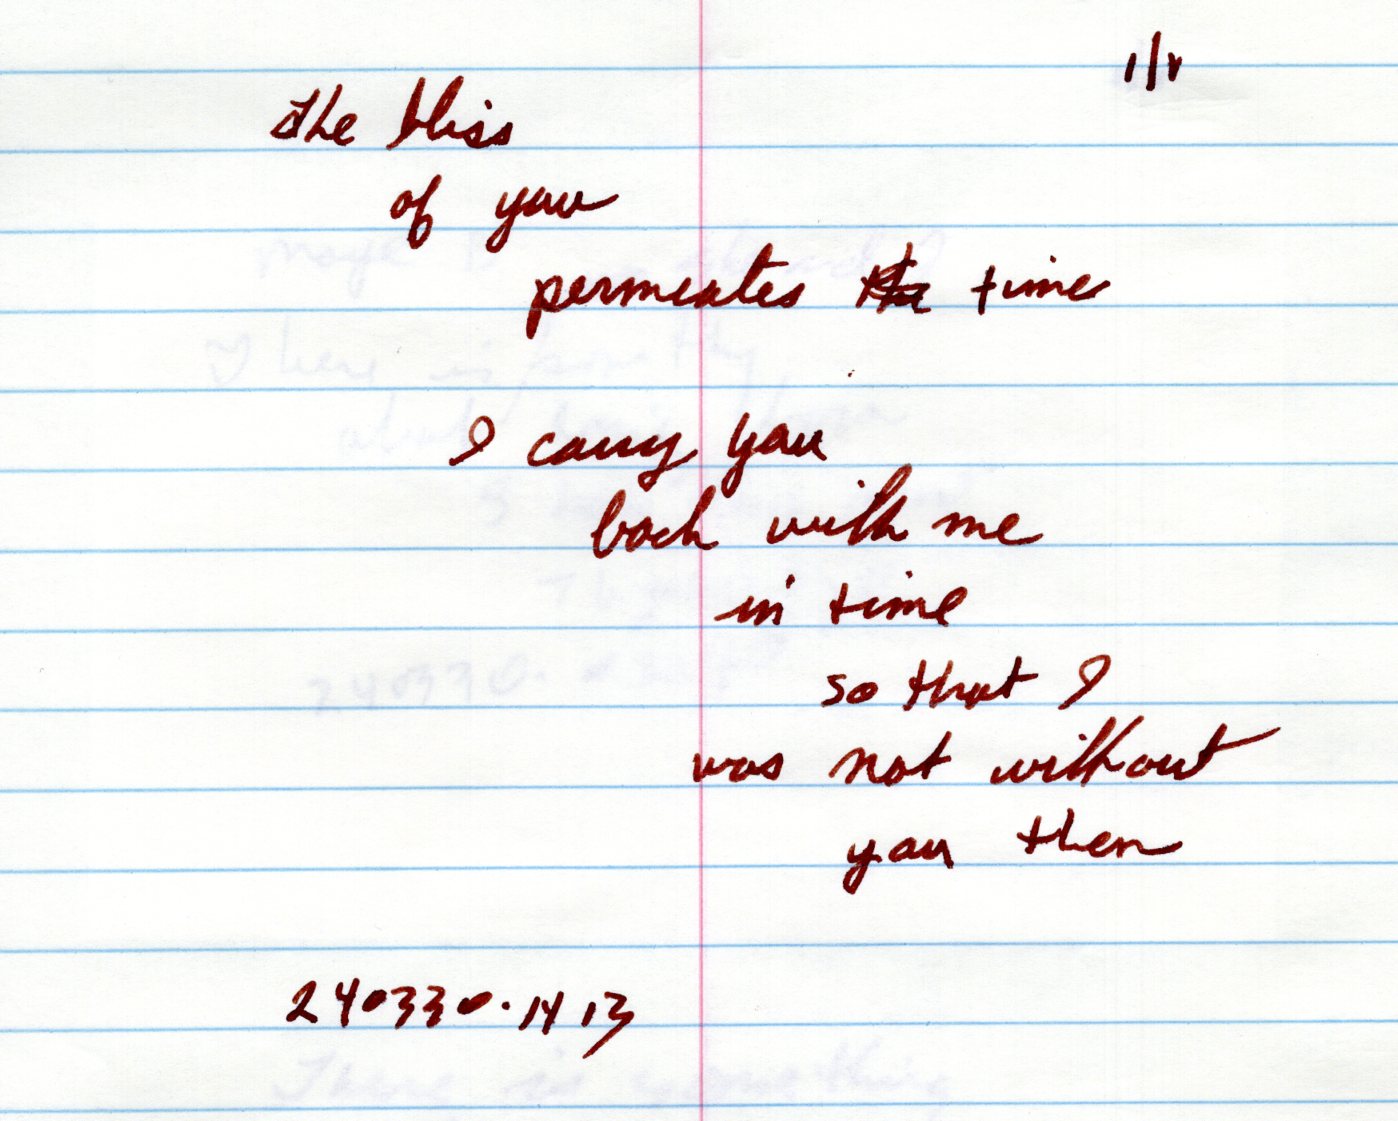 1/1
The bliss
of you
permeates the time
I carry you
back with me
in time
so that I
was not without
you then
240330.1413
There is something